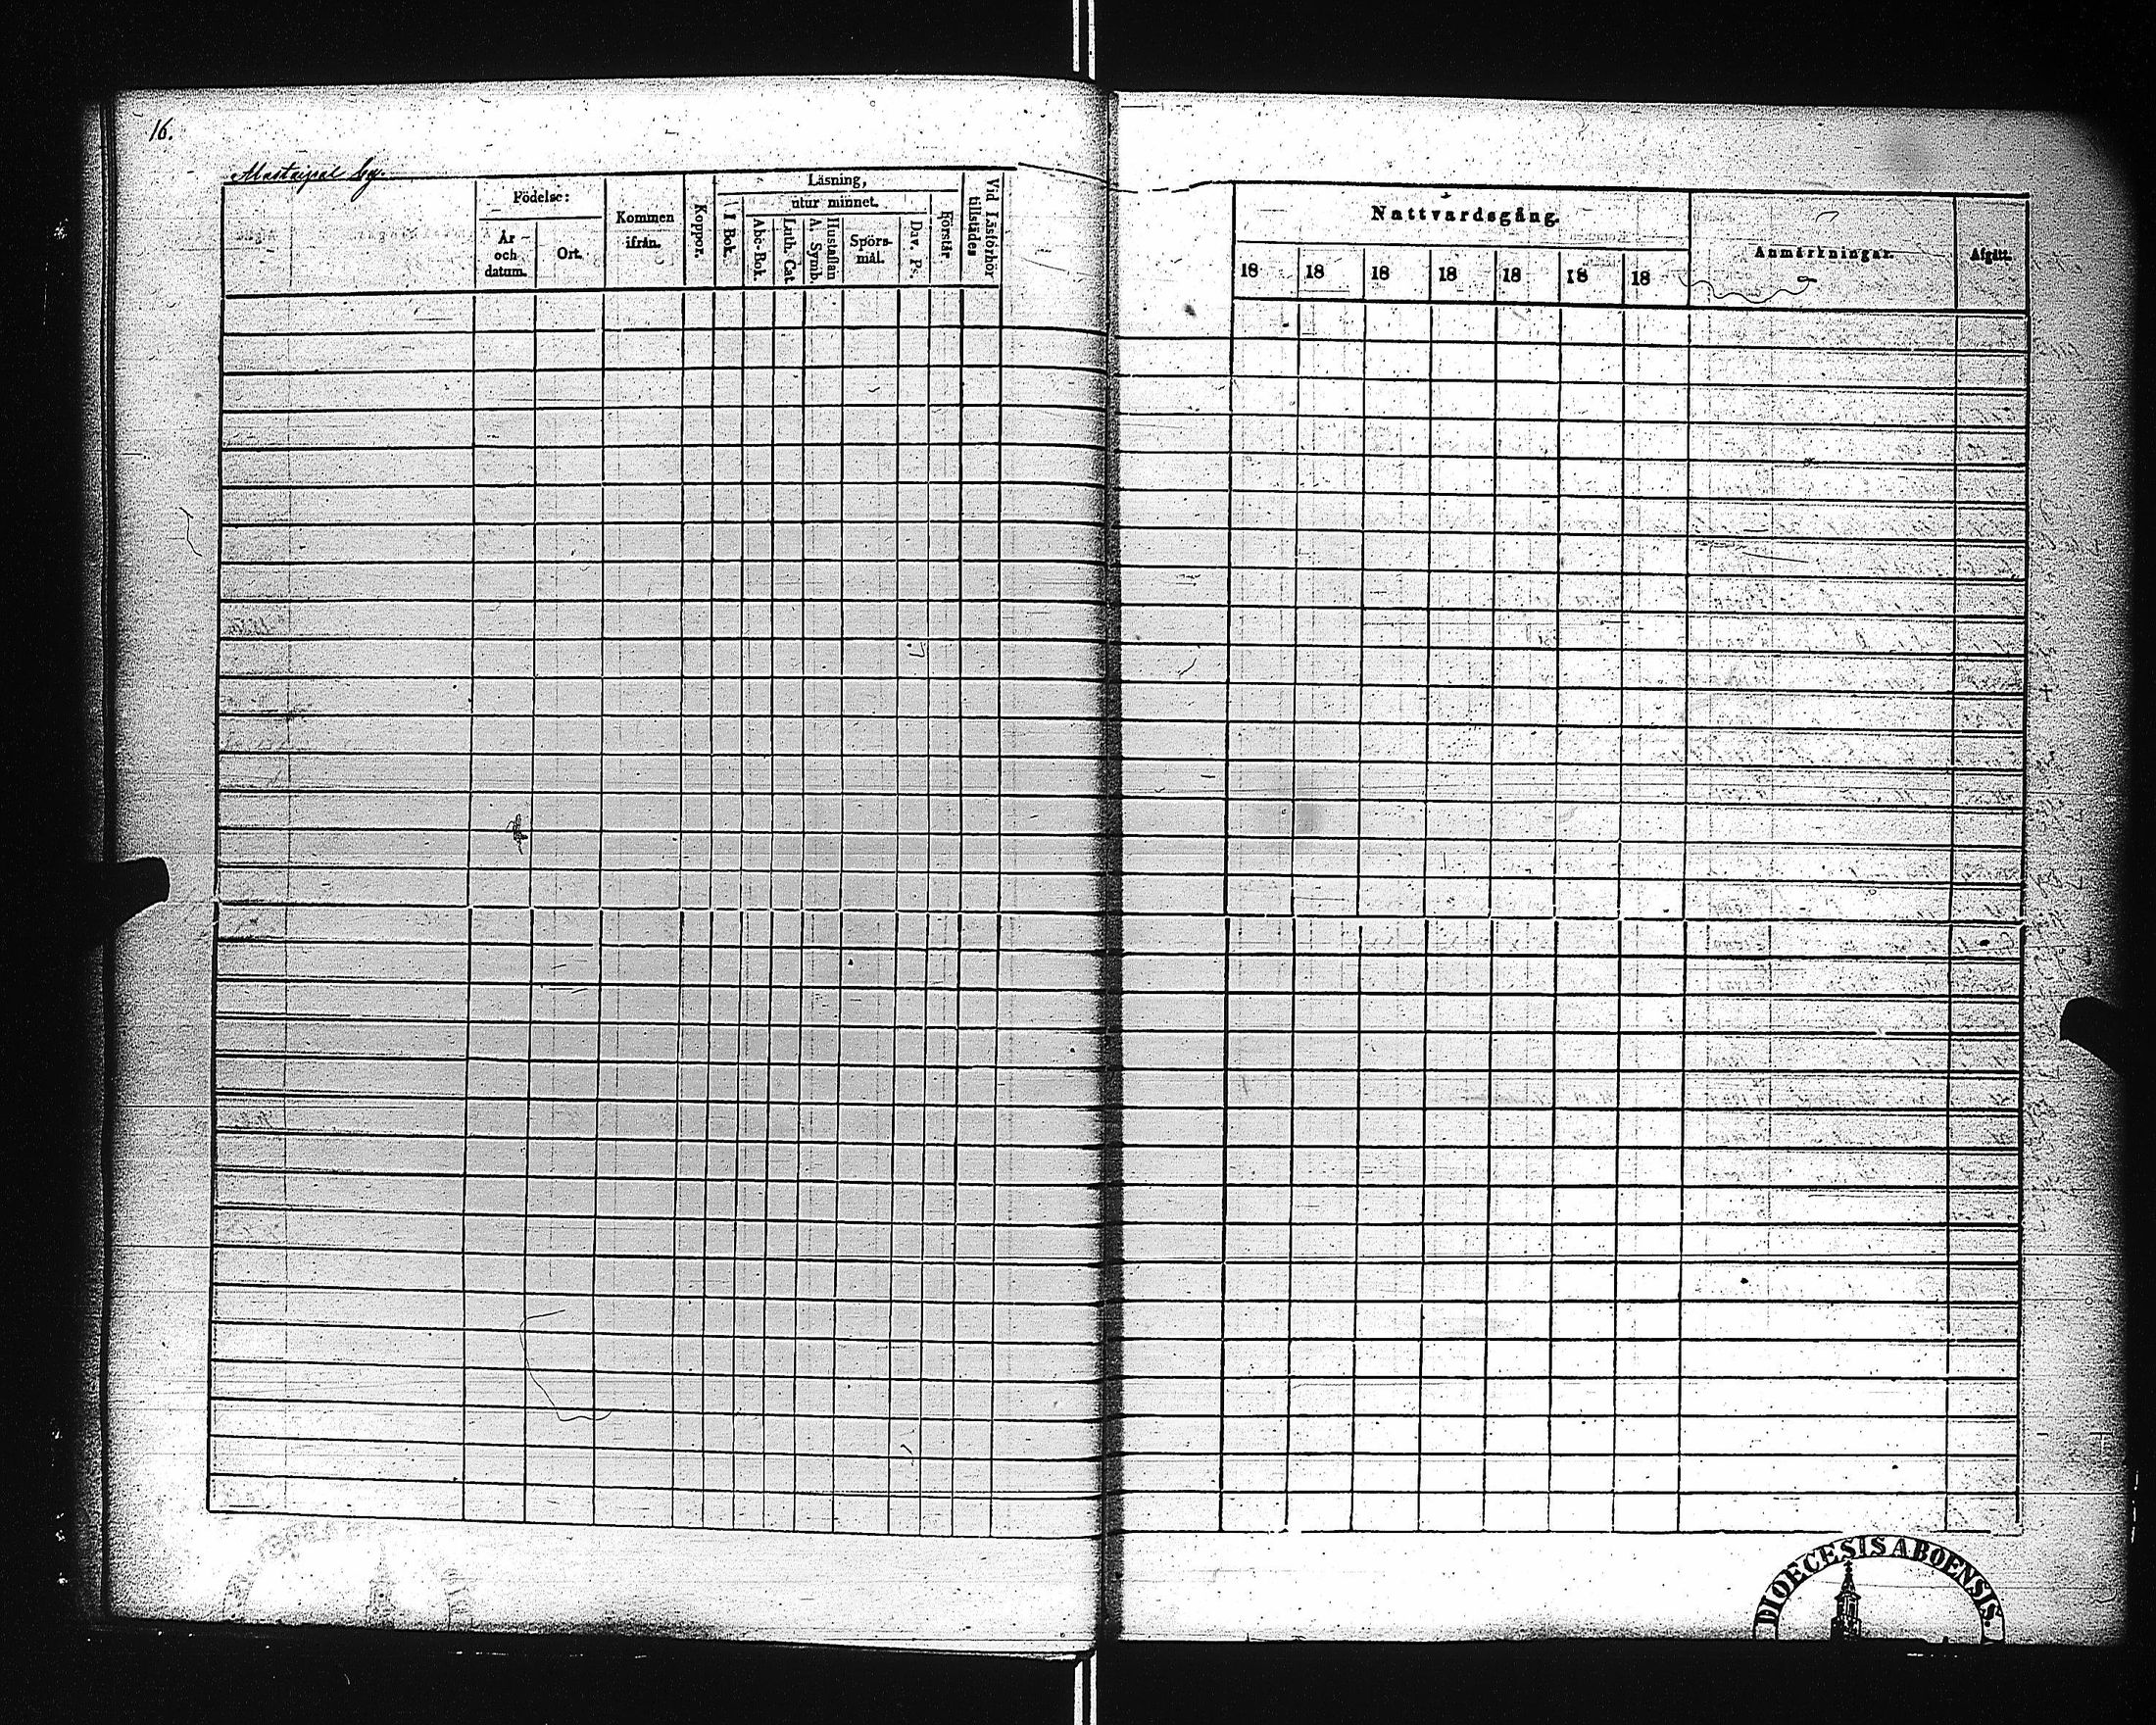 16.
by.
Födelse:
År och datum.
Ort.
Kommen ifrån.
Koppor.
Läsning,
utur minnet.
I Bok.
Abc-Bok.
Luth. Cat.
Hustaflan
A. Symb.
Spörsmål.
Dav. Ps.
Förstår
Vid Läsförhör tillstädes
Nattvardsgång.
18 18 18 18 18 18 18
Anmärkningar.
Afgått.
DIOECESIS ABOENSIS.